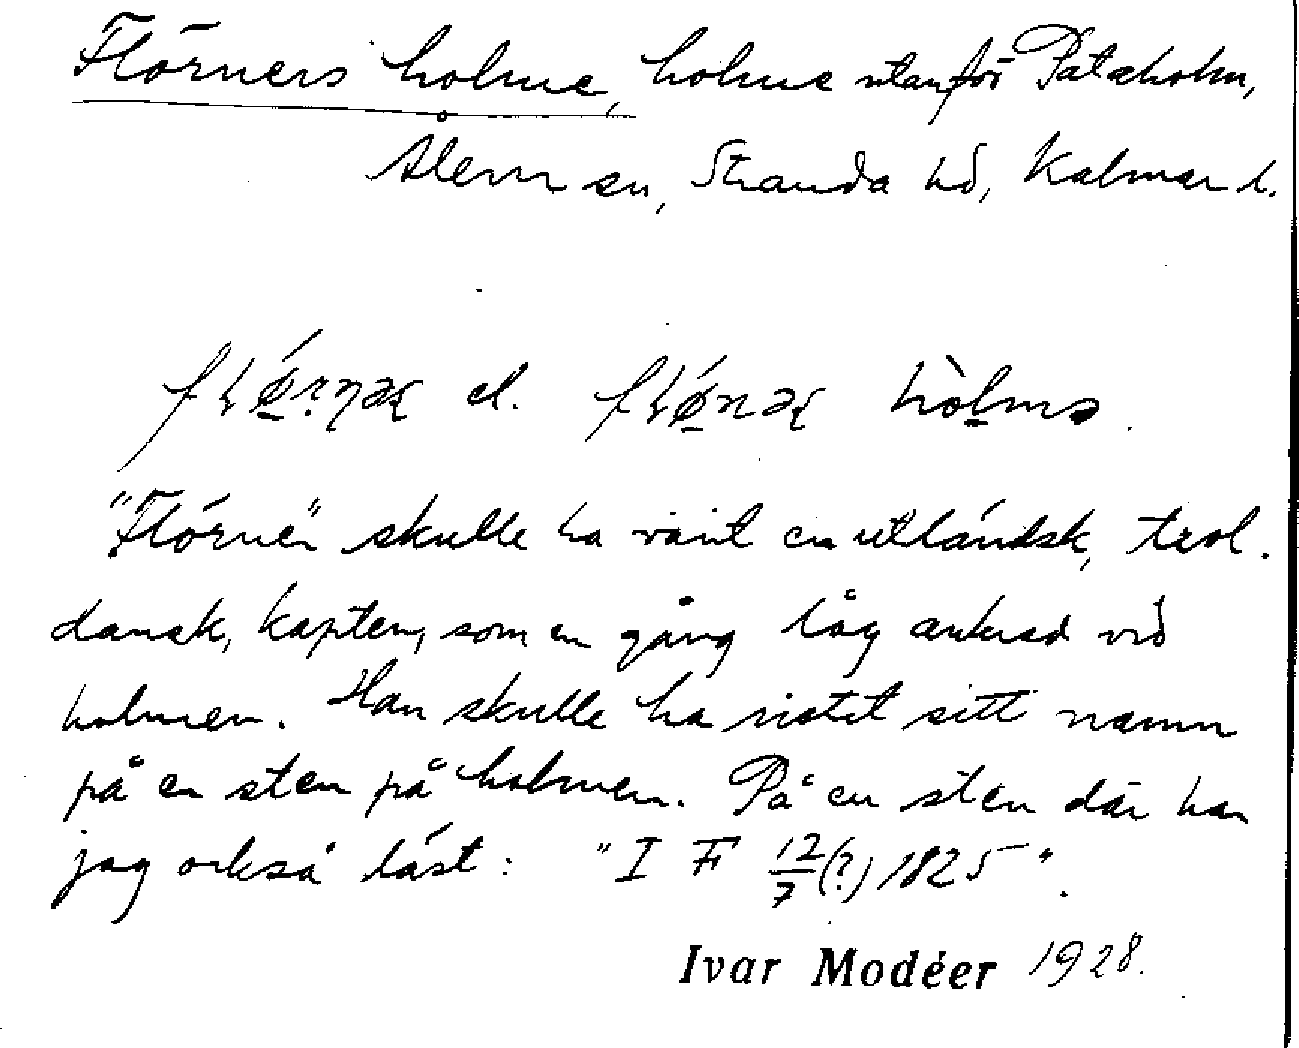 Flörners holme, holme utanför Pataholm,
Ålem sn, Stranda hd, Kalmar l.
el. hòlmə.
"Flörner" skulle ha varit en utländsk, trol.
dansk, kapten, som en gång låg ankrad vid
holmen. Han skulle ha ristat sitt namn
på en sten på holmen. På en sten där har
jag också läst: "I F 12/7 (?) 1825".
Ivar Modéer 1928.